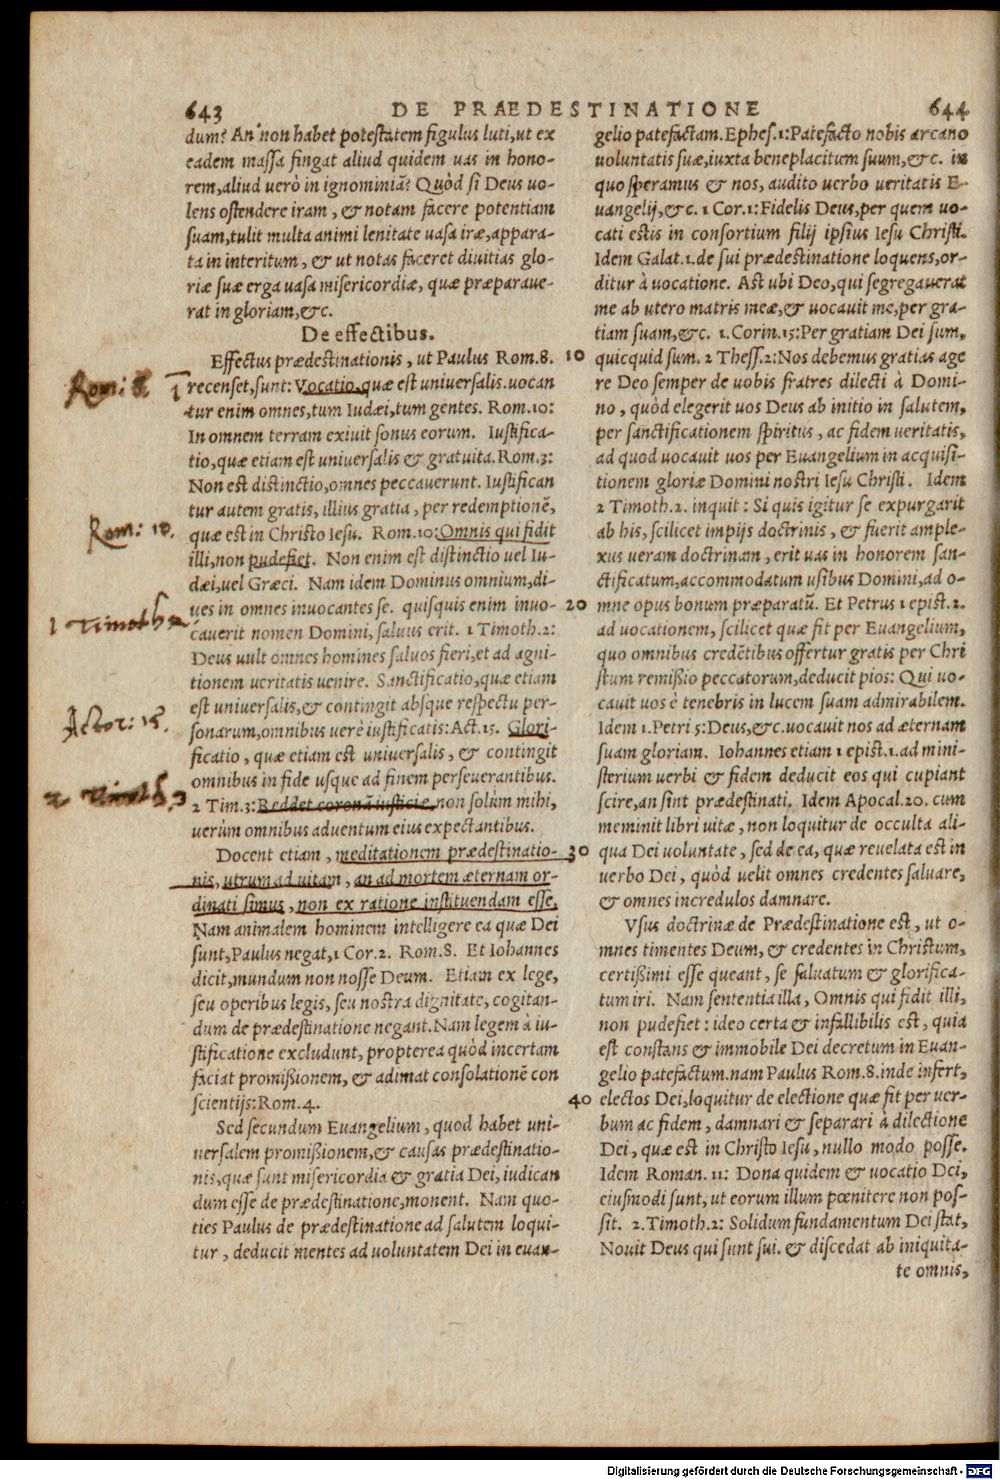 643 DE PRAEDESTINATIONE 644
dum? An non habet potestatem figulus luti, ut ex
eadem massa fingat aliud quidem uas in hono-
rem, aliud uerò in ignominiã? Quòd si Deus uo-
lens ostendere iram, & notam facere potentiam
suam, tulit multa animi lenitate uasa iræ, appara-
ta in interitum, & ut notas faceret diuitias glo-
riæ suæ erga uasa misericordiæ, quæ præparaue-
rat in gloriam, &c.
De effectibus.
Effectus prædestinationis, ut Paulus Rom. 8.
recenset, sunt: Vocatio, quæ est uniuersalis. uocan
tur enim omnes, tum Iudæi, tum gentes. Rom. 10:
In omnem terram exiuit sonus eorum. Iustifica-
tio, quæ etiam est uniuersalis & gratuita. Rom. 3:
Non est distinctio, omnes peccauerunt. Iustifican
tur autem gratis, illius gratia, per redemptionẽ,
quæ est in Christo Iesu. Rom. 10: Omnis qui fidit
illi, non pudefiet. Non enim est distinctio uel Iu-
dæi, uel Græci. Nam idem Dominus omnium, di-
ues in omnes inuocantes se. quisquis enim inuo-
cauerit nomen Domini, saluus erit. 1 Timoth. 2:
Deus uult omnes homines saluos fieri, et ad agni-
tionem ueritatis uenire. Sanctificatio, quæ etiam
est uniuersalis, & contingit absque respectu per-
sonarum, omnibus uerè iustificatis: Act. 15. Glori-
ficatio, quæ etiam est uniuersalis, & contingit
omnibus in fide usque ad finem perseuerantibus.
2 Tim. 3: Reddet coronã iusticiæ, non solùm mihi,
uerùm omnibus aduentum eius expectantibus.
Docent etiam, meditationem prædestinatio-
nis, utrum ad uitam, an ad mortem æternam or-
dinati simus, non ex ratione instituendam esse.
Nam animalem hominem intelligere ea quæ Dei
sunt, Paulus negat, 1 Cor. 2. Rom. 8. Et Iohannes
dicit, mundum non nosse Deum. Etiam ex lege,
seu operibus legis, seu nostra dignitate, cogitan-
dum de prædestinatione negant. Nam legem à iu-
stificatione excludunt, propterea quòd incertam
faciat promißionem, & adimat consolationẽ con
scientijs: Rom. 4.
Sed secundum Euangelium, quod habet uni-
uersalem promißionem, & causas prædestinatio-
nis, quæ sunt misericordia & gratia Dei, iudican
dum esse de prædestinatione, monent. Nam quo-
ties Paulus de prædestinatione ad salutem loqui-
tur, deducit mentes ad uoluntatem Dei in euan-
Rom: 8.
Rom: 10.
1 Timoth 2
Actor: 15.
2 Timoth 3
10
20
30
40
gelio patefactam. Ephes. 1: Patefacto nobis arcano
uoluntatis suæ, iuxta beneplacitum suum, &c. in
quo speramus & nos, audito uerbo ueritatis E-
uangelij, &c. 1 Cor. 1: Fidelis Deus, per quem uo-
cati estis in consortium filij ipsius Iesu Christi.
Idem Galat. 1. de sui prædestinatione loquens, or-
ditur à uocatione. Ast ubi Deo, qui segregauerat
me ab utero matris meæ, & uocauit me, per gra-
tiam suam, &c. 1. Corin. 15: Per gratiam Dei sum,
quicquid sum. 2 Thess. 2: Nos debemus gratias age
re Deo semper de uobis fratres dilecti à Domi-
no, quòd elegerit uos Deus ab initio in salutem,
per sanctificationem spiritus, ac fidem ueritatis,
ad quod uocauit uos per Euangelium in acquisi-
tionem gloriæ Domini nostri Iesu Christi. Idem
2 Timoth. 2. inquit: Si quis igitur se expurgarit
ab his, scilicet impijs doctrinis, & fuerit ample-
xus ueram doctrinam, erit uas in honorem san-
ctificatum, accommodatum usibus Domini, ad o-
mne opus bonum præparatũ. Et Petrus 1 epist. 2.
ad uocationem, scilicet quæ fit per Euangelium,
quo omnibus credẽtibus offertur gratis per Chri
stum remißio peccatorum, deducit pios: Qui uo-
cauit uos è tenebris in lucem suam admirabilem.
Idem 1. Petri 5: Deus, &c. uocauit nos ad æternam
suam gloriam. Iohannes etiam 1 epist. 1. ad mini-
sterium uerbi & fidem deducit eos qui cupiant
scire, an sint prædestinati. Idem Apocal. 20. cum
meminit libri uitæ, non loquitur de occulta ali-
qua Dei uoluntate, sed de ea, quæ reuelata est in
uerbo Dei, quòd uelit omnes credentes saluare,
& omnes incredulos damnare.
Vsus doctrinæ de Prædestinatione est, ut o-
mnes timentes Deum, & credentes in Christum,
certißimi esse queant, se saluatum & glorifica-
tum iri. Nam sententia illa, Omnis qui fidit illi,
non pudefiet: ideo certa & infallibilis est, quia
est constans & immobile Dei decretum in Euan-
gelio patefactum. nam Paulus Rom. 8. inde infert,
electos Dei, loquitur de electione quæ fit per uer-
bum ac fidem, damnari & separari à dilectione
Dei, quæ est in Christo Iesu, nullo modo posse.
Idem Roman. 11: Dona quidem & uocatio Dei,
eiusmodi sunt, ut eorum illum pœnitere non pos-
sit. 2. Timoth. 2: Solidum fundamentum Dei stat,
Nouit Deus qui sunt sui. & discedat ab iniquita-
te omnis,
Digitalisierung gefördert durch die Deutsche Forschungsgemeinschaft - DFG